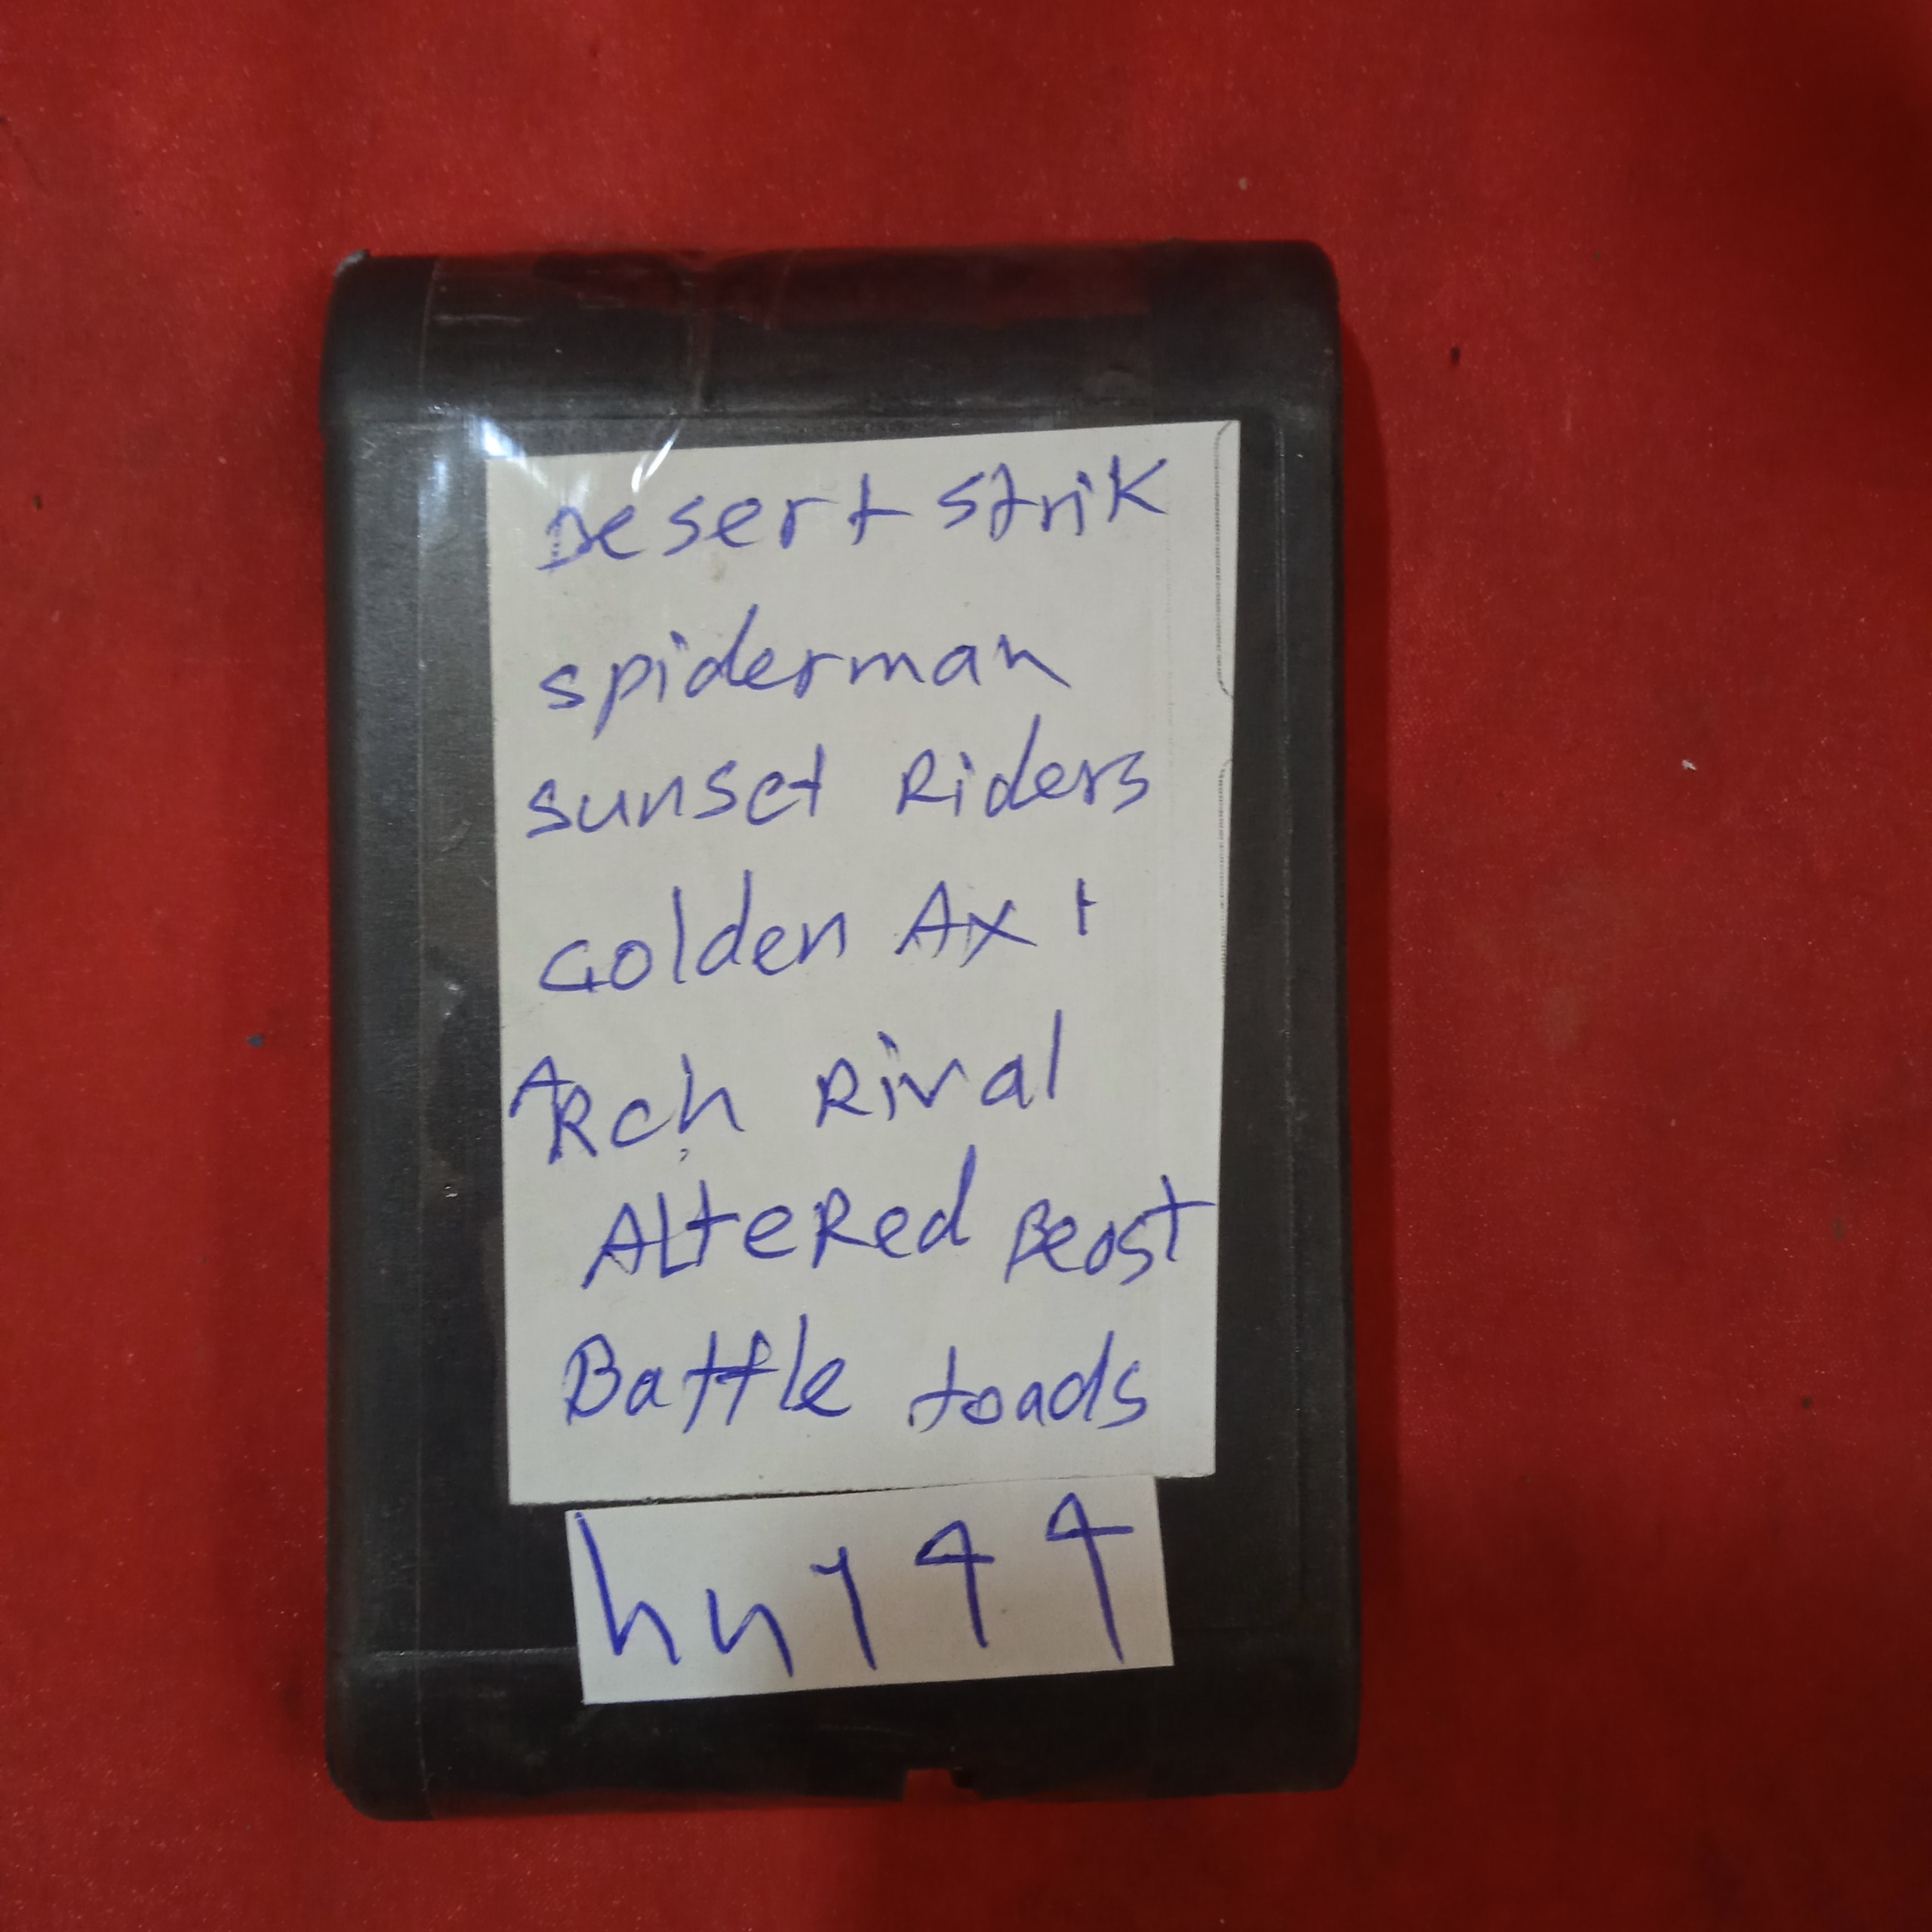 Desert strik
spiderman
sunset Riders
Golden Ax 1
ARch Rival
AlteRed Beast
Battle toads
hny44